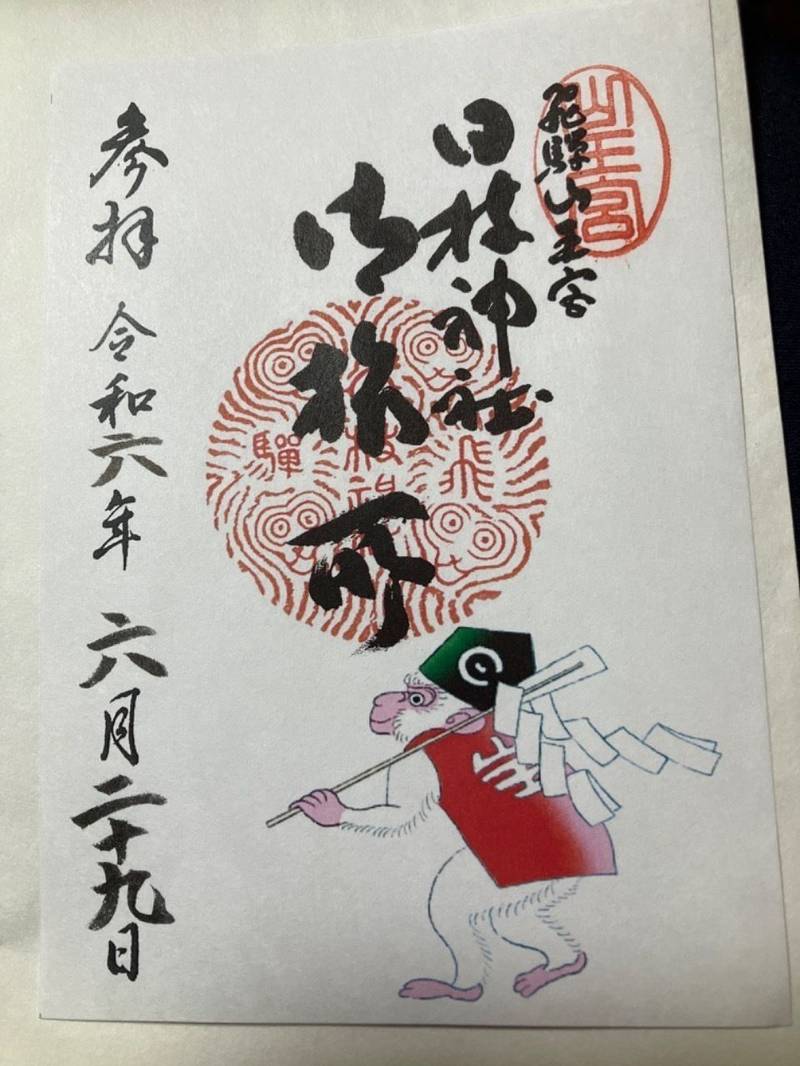 飛騨山王宮
山王宮
日枝神社
御旅所
飛
騨
参拝 令和六年 六月二十九日